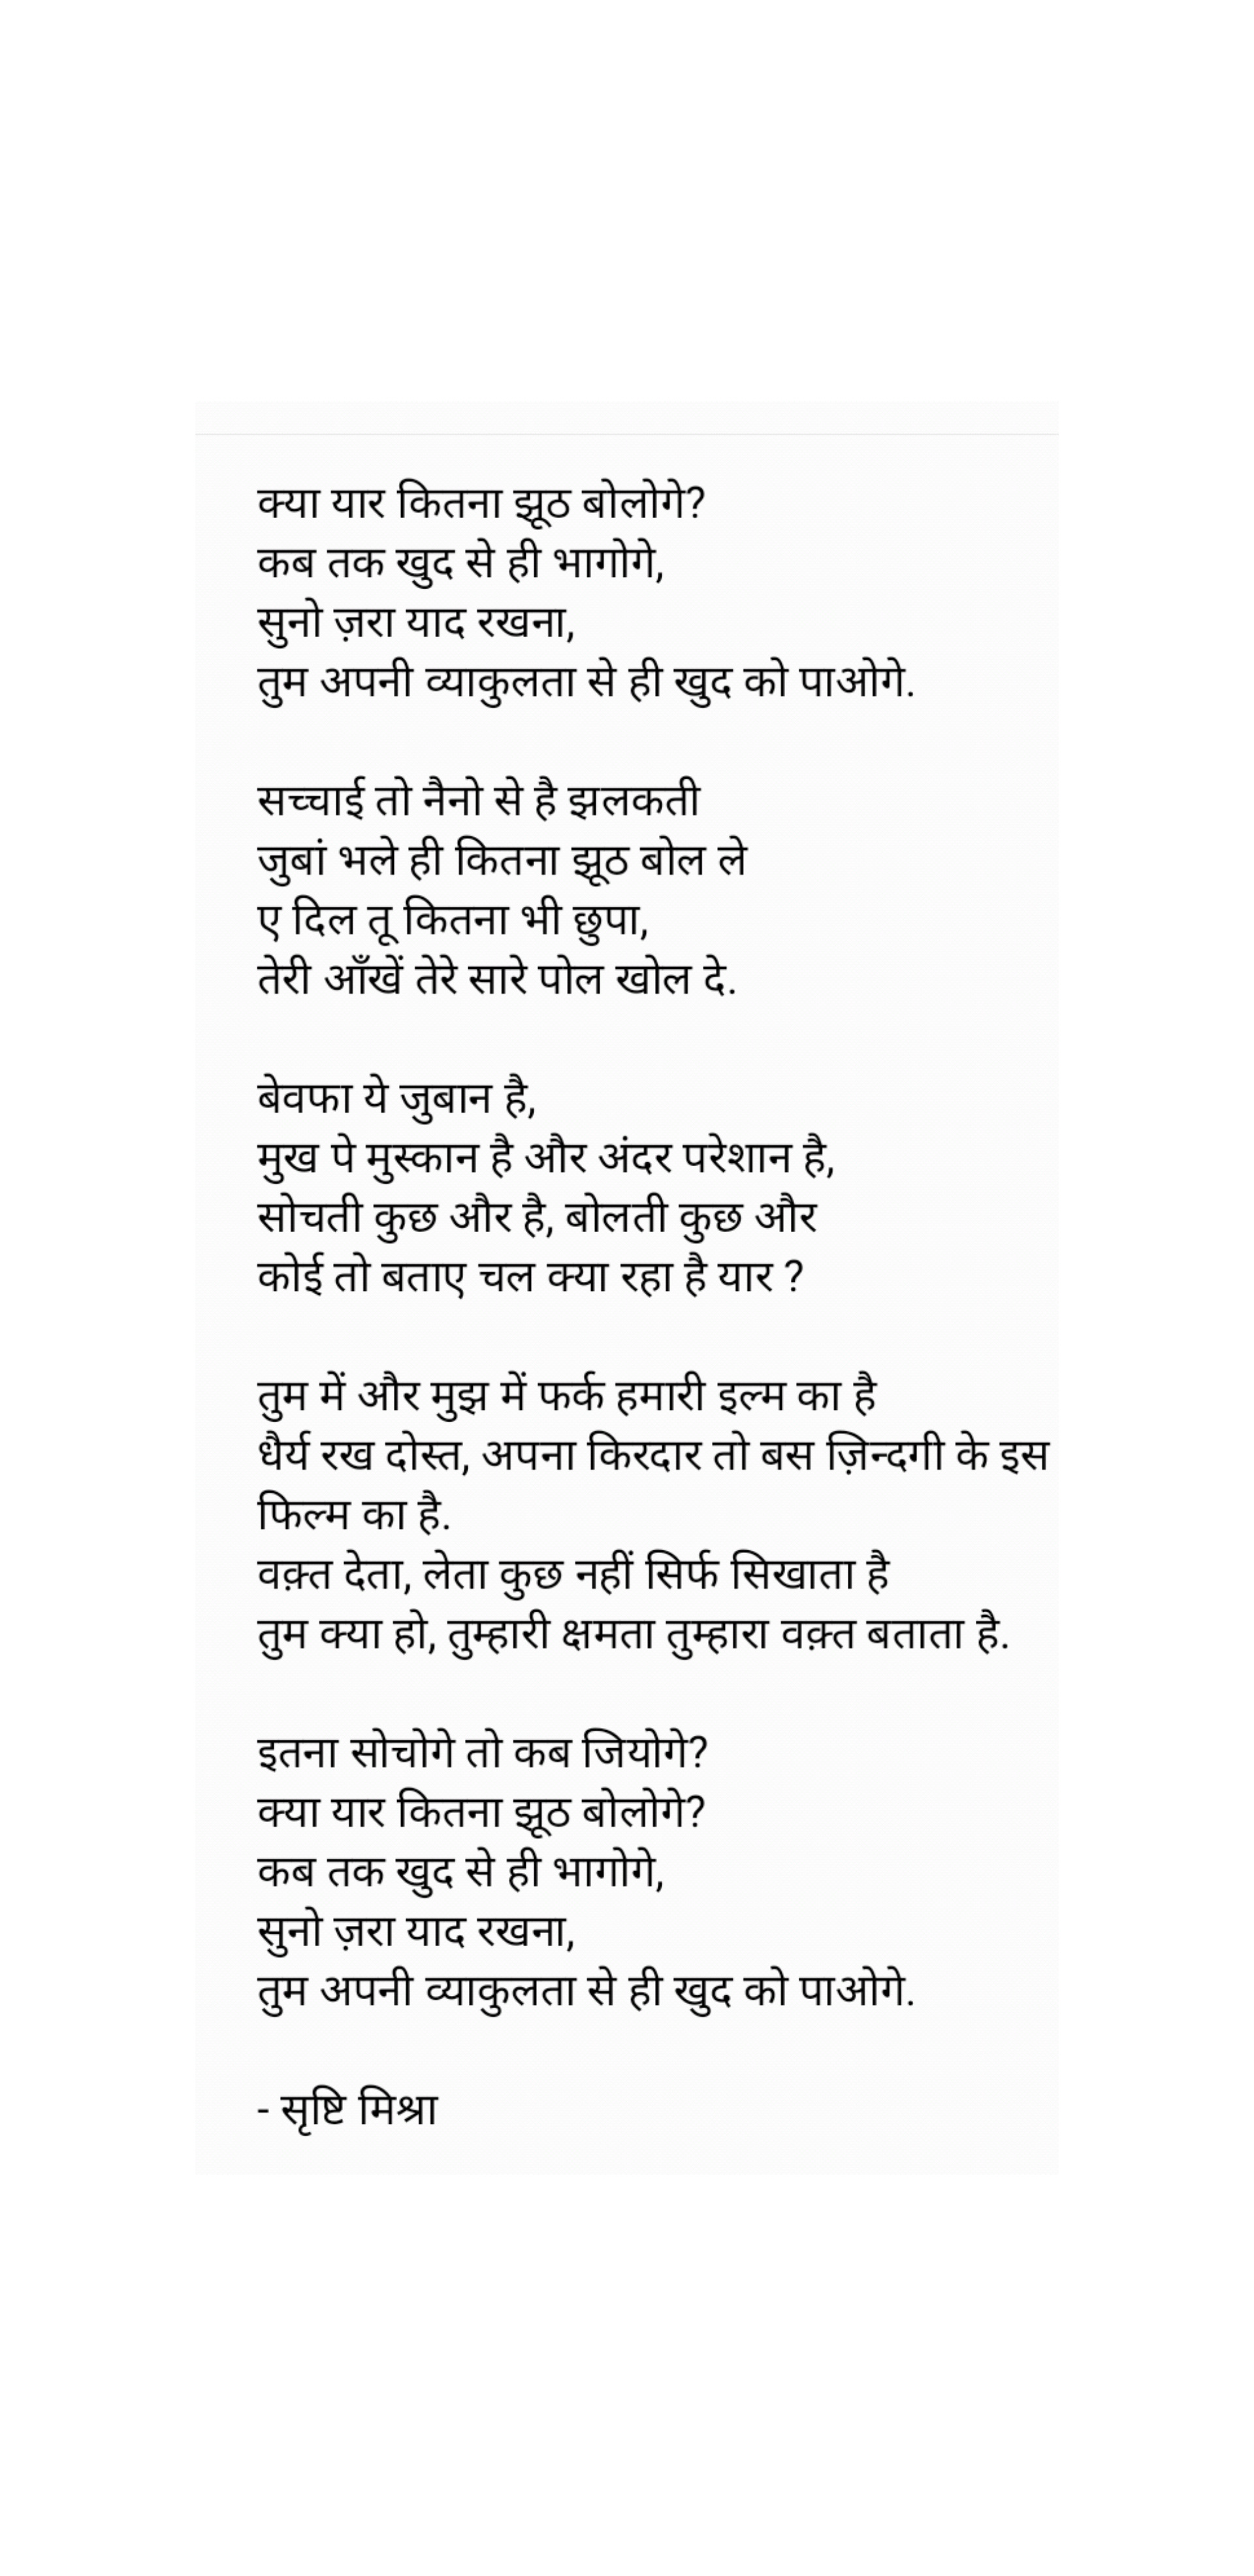 क्या यार कितना झूठ बोलोगे?
कब तक खुद से ही भागोगे,
सुनो ज़रा याद रखना,
तुम अपनी व्याकुलता से ही खुद को पाओगे.
सच्चाई तो नैनो से है झलकती
जुबां भले ही कितना झूठ बोल ले
ए दिल तू कितना भी छुपा,
तेरी आँखें तेरे सारे पोल खोल दे.
बेवफा ये जुबान है,
मुख पे मुस्कान है और अंदर परेशान है,
सोचती कुछ और है, बोलती कुछ और
कोई तो बताए चल क्या रहा है यार ?
तुम में और मुझ में फर्क हमारी इल्म का है
धैर्य रख दोस्त, अपना किरदार तो बस ज़िन्दगी के इस
फिल्म का है.
वक़्त देता, लेता कुछ नहीं सिर्फ सिखाता है
तुम क्या हो, तुम्हारी क्षमता तुम्हारा वक़्त बताता है.
इतना सोचोगे तो कब जियोगे?
क्या यार कितना झूठ बोलोगे?
कब तक खुद से ही भागोगे,
सुनो ज़रा याद रखना,
तुम अपनी व्याकुलता से ही खुद को पाओगे.
- सृष्टि मिश्रा